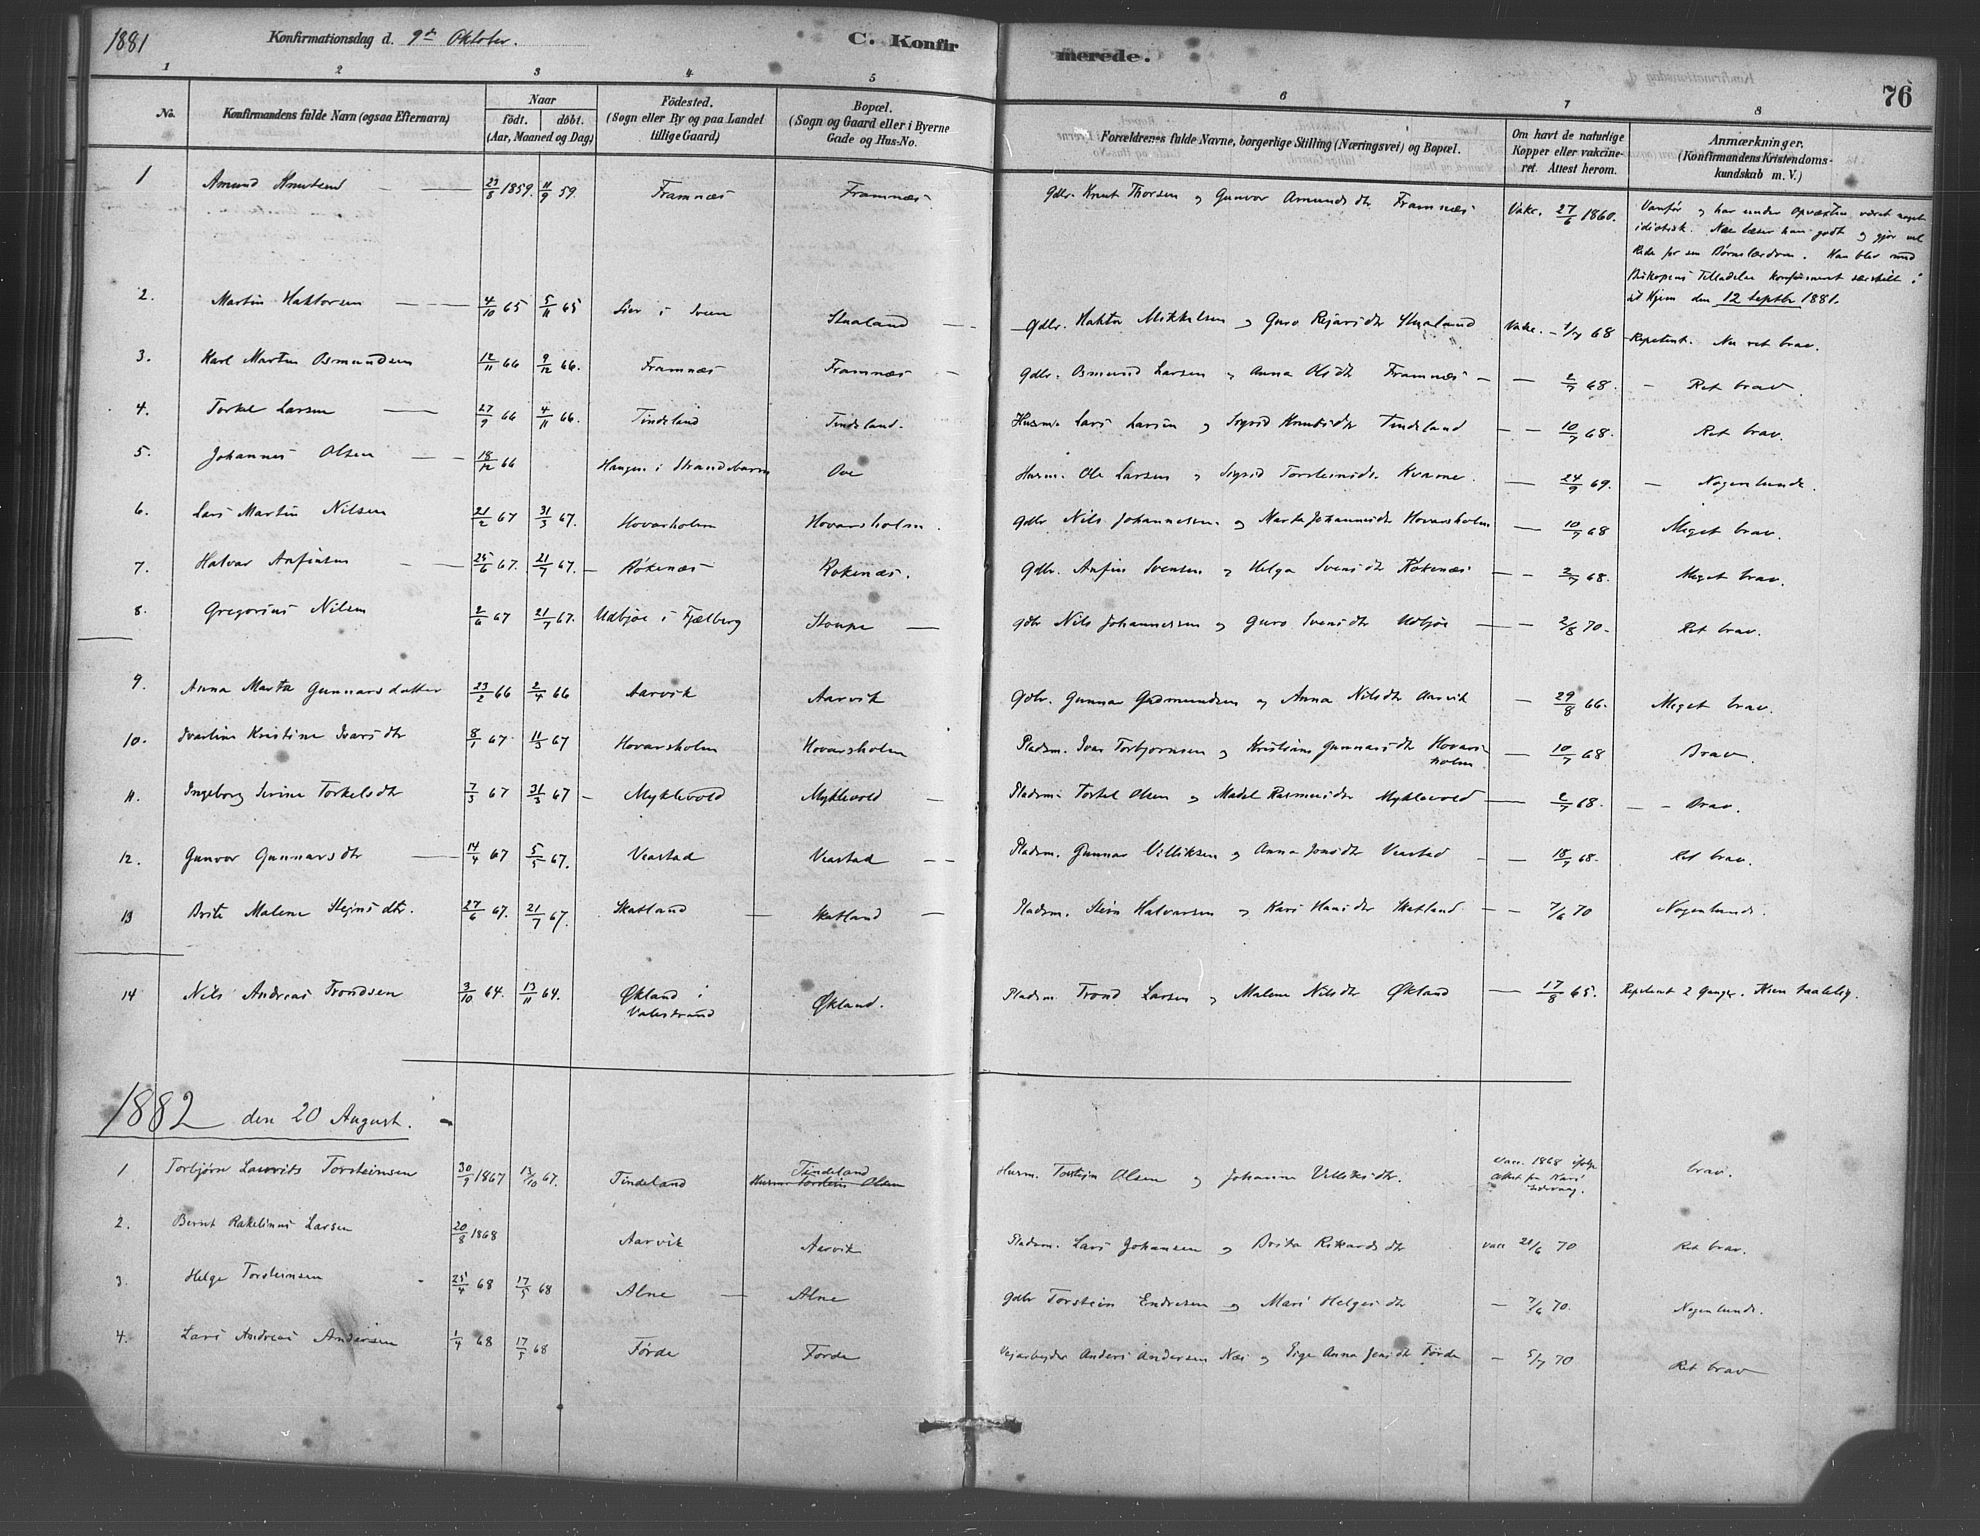 1881 Konfirmationsdag d. 9de Oktober. C. Konfirmerede. 76
1 2 3 4 5 6 7 8
No. Konfirmandens fulde Navn (ogsaa Efternavn) Naar födt. döbt. (Aar, Maaned og Dag) Födested. (Sogn eller By og paa Landet tillige Gaard) Bopæl. (Sogn og Gaard eller i Byerne Gade og Hus-No. Forældrenes fulde Navne, borgerlige Stilling (Næringsvei) og Bopæl. Om havt de naturlige Kopper eller vakcineret. Attest herom. Anmærkninger. (Konfirmandens Kristendomskundskab m. V.)
1 Amund Knutsen 23/8 1859. 11/9 59. Framnæs Framnæs. Gdbr. Knut Thorsen og Gunvor Amundsdtr Framnæs Vakc. 27/6 1860. Vanfør og har under Opvæxten været noget
idiotisk. Nu læser han godt og gjør vel
Rede for sin Børnelærdom. Han blev med
Biskopens Tilladelse konfirmeret særskilt i
sit Hjem den 12 Septbr 1881.
2. Martin Haktorsen 4/10 65 5/11 65 Lier i Sveen Skaaland Gdbr. Haktor Mikkelsen og Guro Rejarsdtr Skaaland Vakc. 68 Repetent. Nu ret brav.
3. Karl Martin Osmundsen 12/11 66 9/12 66. Framnæs Framnæs Gdbr. Osmund Larsen og Anna Olsdtr Framnæs 2/7 68. Ret brav.
4. Torkel Larsen 27/9 66 4/11 66. Tindeland Tindeland. Husm. Lars Larsen og Sigrid Knutsdtr Tindeland 10/7 68. Ret brav.
5. Johannes Olsen 18/12 66 Haugen i Strandebarm Ove Husm. Ole Larsen og Sigrid Torsteinsdtr Kvarne. 24/9 69. Nogenlunde.
6. Lars Martin Nilsen 21/2 67 31/3 67. Hovarsholm Hovarsholm. Gdbr Nils Johannesen og Marta Johannesdtr Hovarsholm 10/7 68 Meget brav.
7. Halvar Anfinsen 25/6 67. 21/7 67. Røkenæs Røkenæs. Gdbr. Anfin Svensen og Helga Svensdtr Røkenæs 2/7 68. Meget brav.
8. Gregorius Nilsen 2/6 67 21/7 67. Udbjoe i Fjelberg Stoupe Gdbr Nils Johannessen og Guro Svensdtr Udbjoe 2/8 70. Ret brav.
9. Anna Marta Gunnarsdatter 23/2 66 2/4 66 Aarvik Aarvik Gdbr. Gunnar Gudmundsen og Anna Nilsdtr Aarvik 29/8 66. Meget brav.
10. Ivarline Kristine Ivarsdtr 8/1 67. 11/3 67 Hovarsholm Hovarsholm Pladsm. Ivar Torbjørnsen og Kristiane Gunnarsdtr Hovars-
holm. 10/7 68 Brav.
11. Ingeborg Serine Torkelsdtr 7/3 67 31/3 67 Myklevold Myklevold Pladsm. Torkel Olsen og Madel Rasmusdtr Myklevold 2/7 68. Brav.
12. Gunvor Gunnarsdtr 14/4 67 5/5 67. Veastad Veastad Pladsm. Gunnar Villiksen og Anna Jonsdtr Veastad 18/7 68. Ret brav.
13 Brita Malene Stejnsdtr. 27/6 67. 21/7 67. Skatland Skatland Pladsm. Stein Halvarsen og Kari Hansdtr Skatland 7/6 70 Nogenlunde.
14 Nils Andreas Trondsen 3/10 64. 13/11 64. Økland i
Valestrand Økland. Pladsm Trond Larsen og Malene Nilsdtr Økland 17/8 65. Repetent 2 Ganger. Kun taalelig.
1882 den 20 August.
1 Torbjørn Lauvits Torsteinsen 30/9 1867 13/10 67. Tindeland Tindeland
Husm. Torstein Olsen Husm. Torstein Olsen og Johanna Villiksdtr. vacc. 1868 ifølge
Attest fra Kari brav.
2. Bernt Rakelinus Larsen 20/8 1868 Aarvik Aarvik Pladsm. Lars Johansen og Brita Rikardsdtr vacc 21/6 70 Ret brav.
3. Helge Torsteinsen 25/4 68 17/5 68 Alne Alne Gdbr Torstein Endresen og Mari Helgesdtr 7/6 70. Nogenlunde.
4. Lars Andreas Andersen 1/4 68 17/5 68 Førde Førde Vejarbejder Anders Andersen Næs og Pige Anna Jensdtr Førde 5/7 70 Ret brav